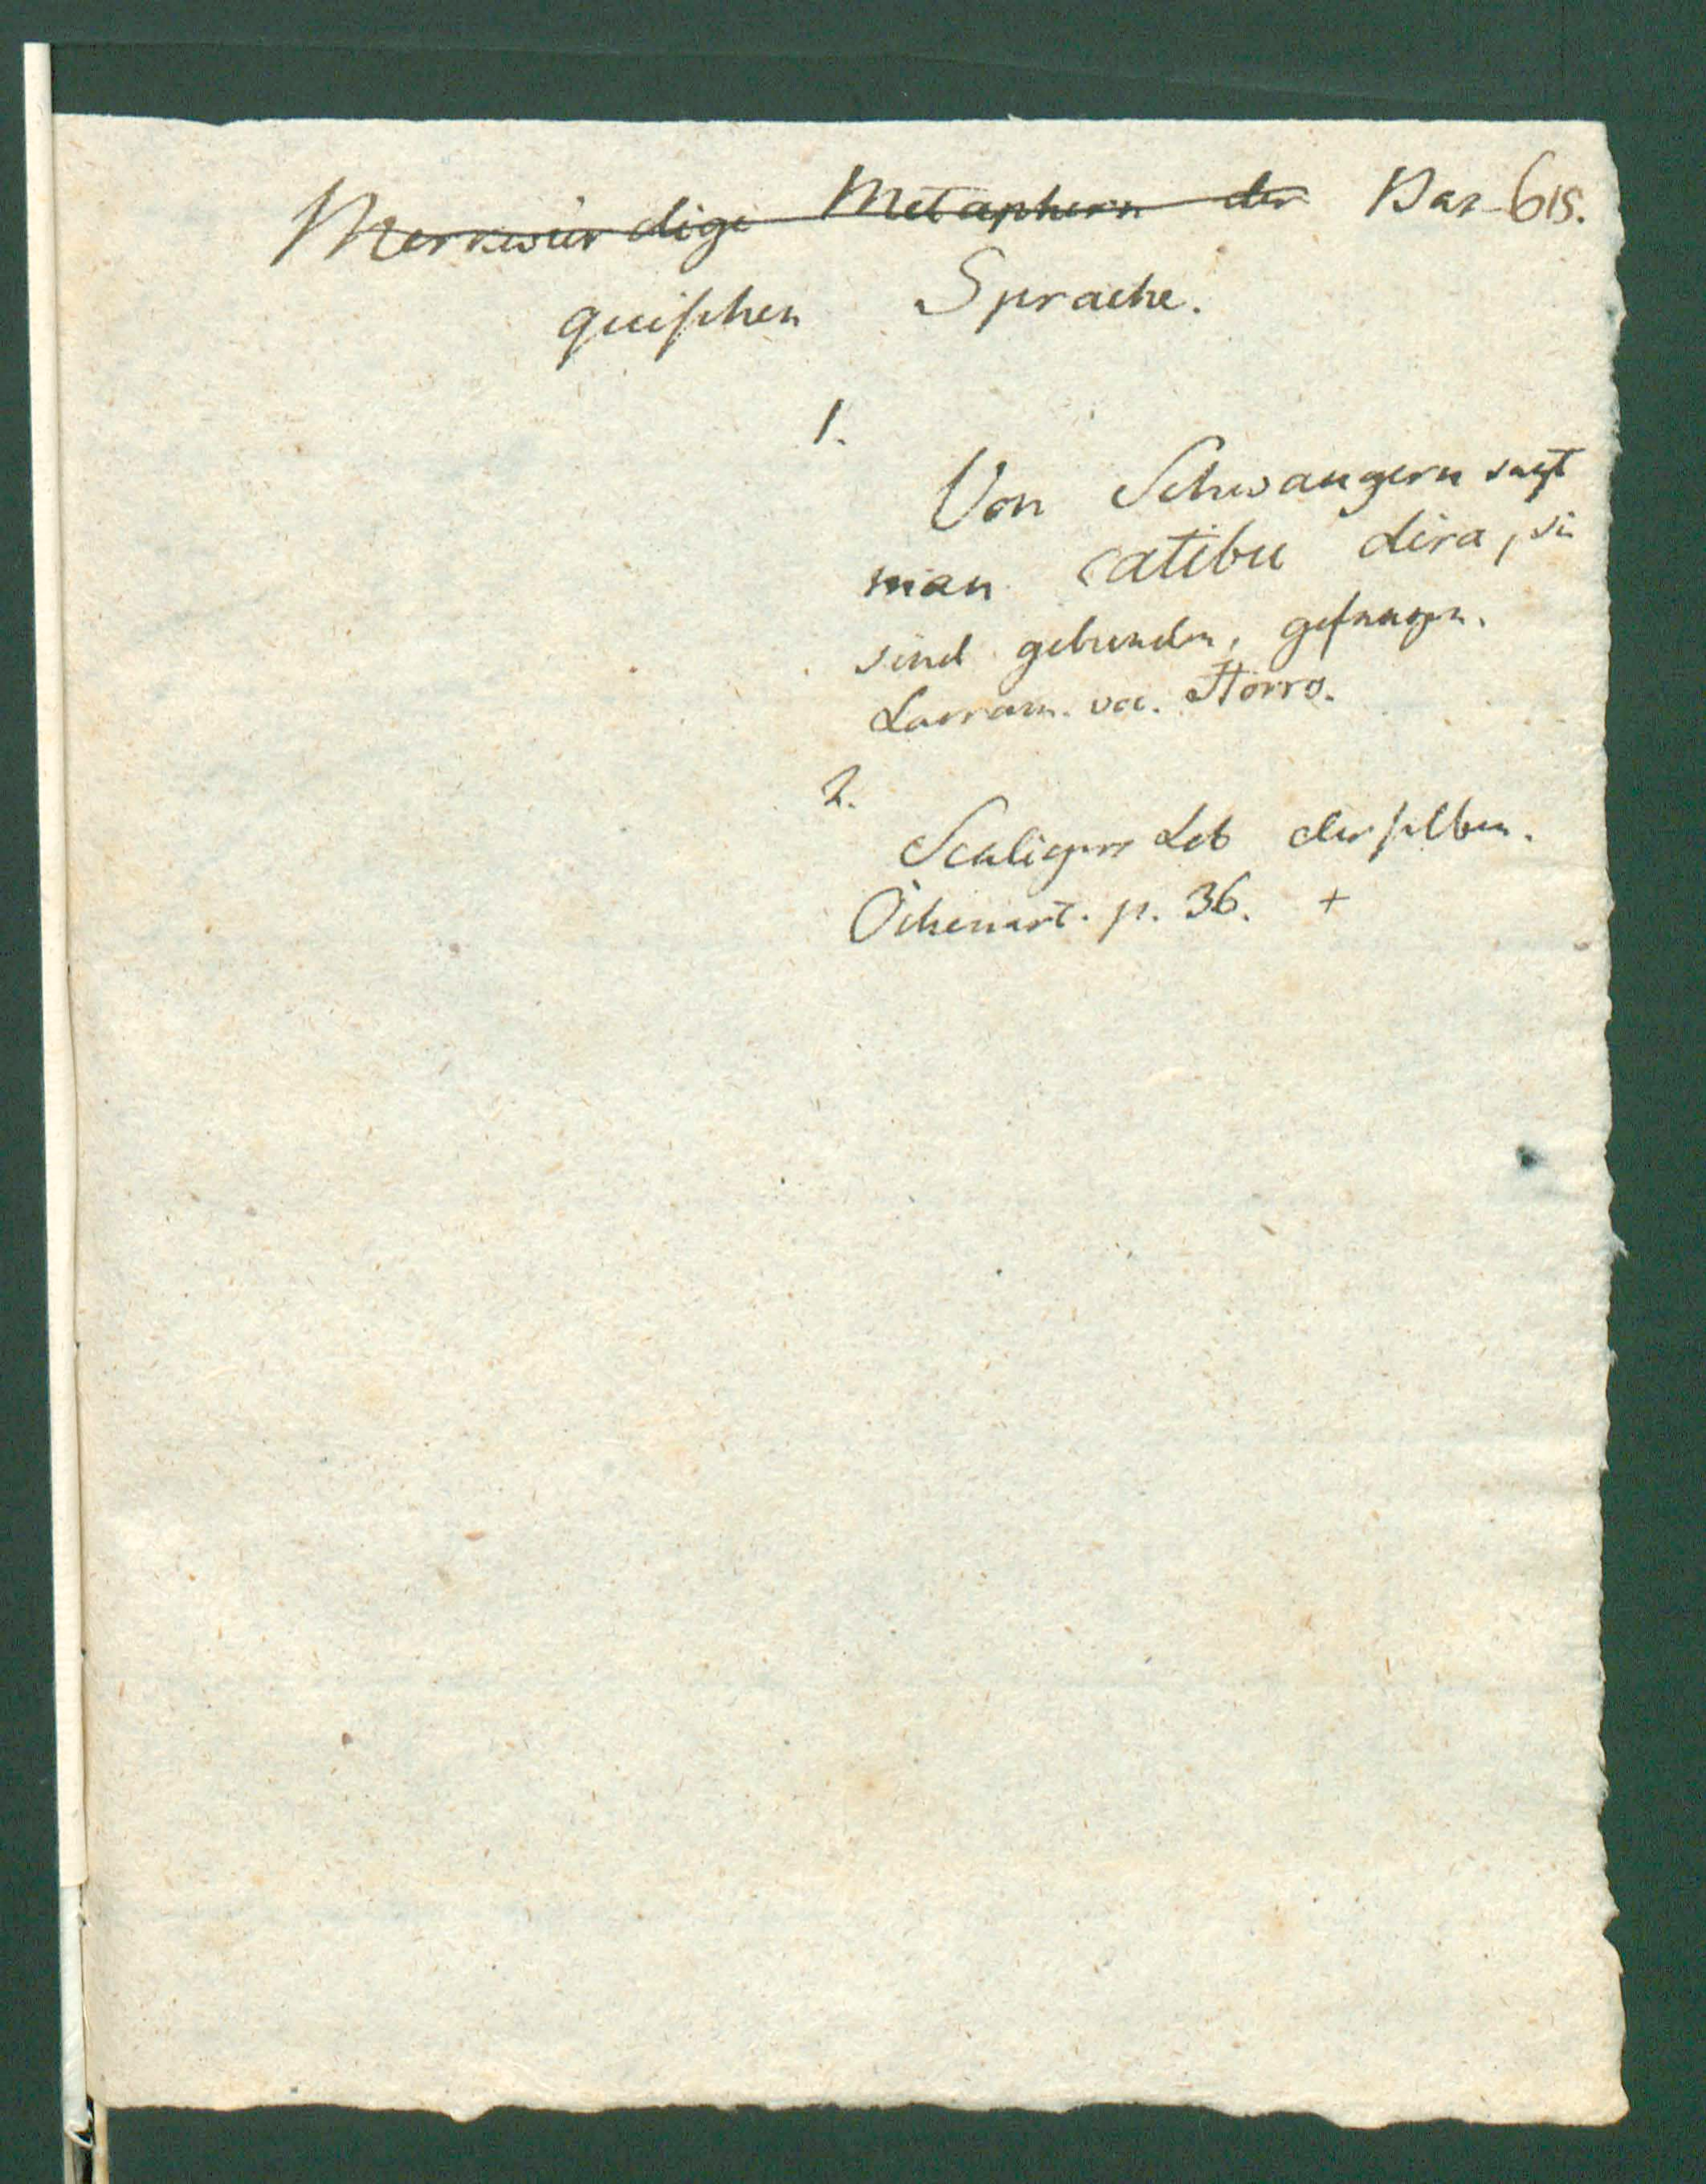 Merkwürdige Metaphern der Vas- 618.
quischen Sprache.
1.
Von Schwangern sagt
man catibu dira, sie
sind gebunden, gefangen.
Larram. voc.
2.
Scaligers Lob derselben.
Oihenart. p. 36. +